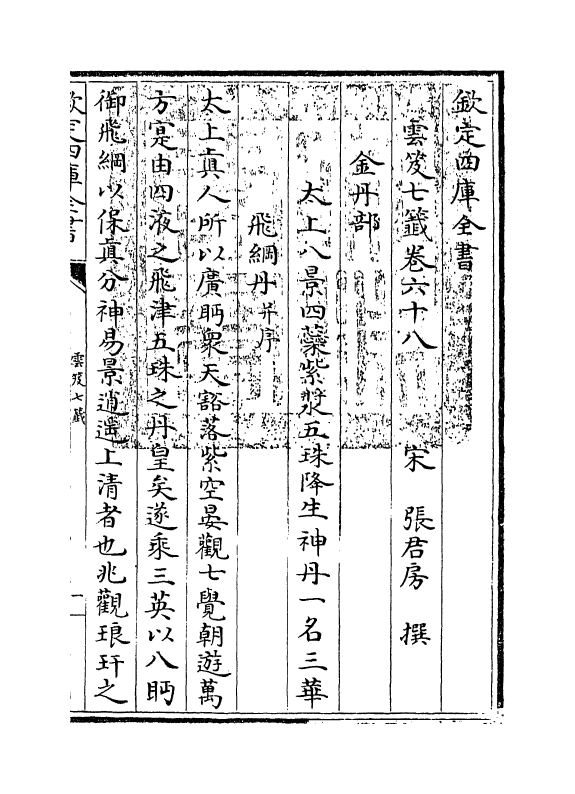 欽定四庫全書
雲笈七籤卷六十八 宋 張君房 撰
金丹部
太上八景四蘂紫漿五珠降生神丹一名三華
飛綱丹并序
太上真人所以廣眄衆天豁落紫空晏觀七覺朝遊萬
方寔由四液之飛津五珠之丹皇矣遂乘三英以八眄
御飛綱以保真分神易景逍遥上清者也兆觀琅玕之
欽定四庫全書
雲笈七籤
一